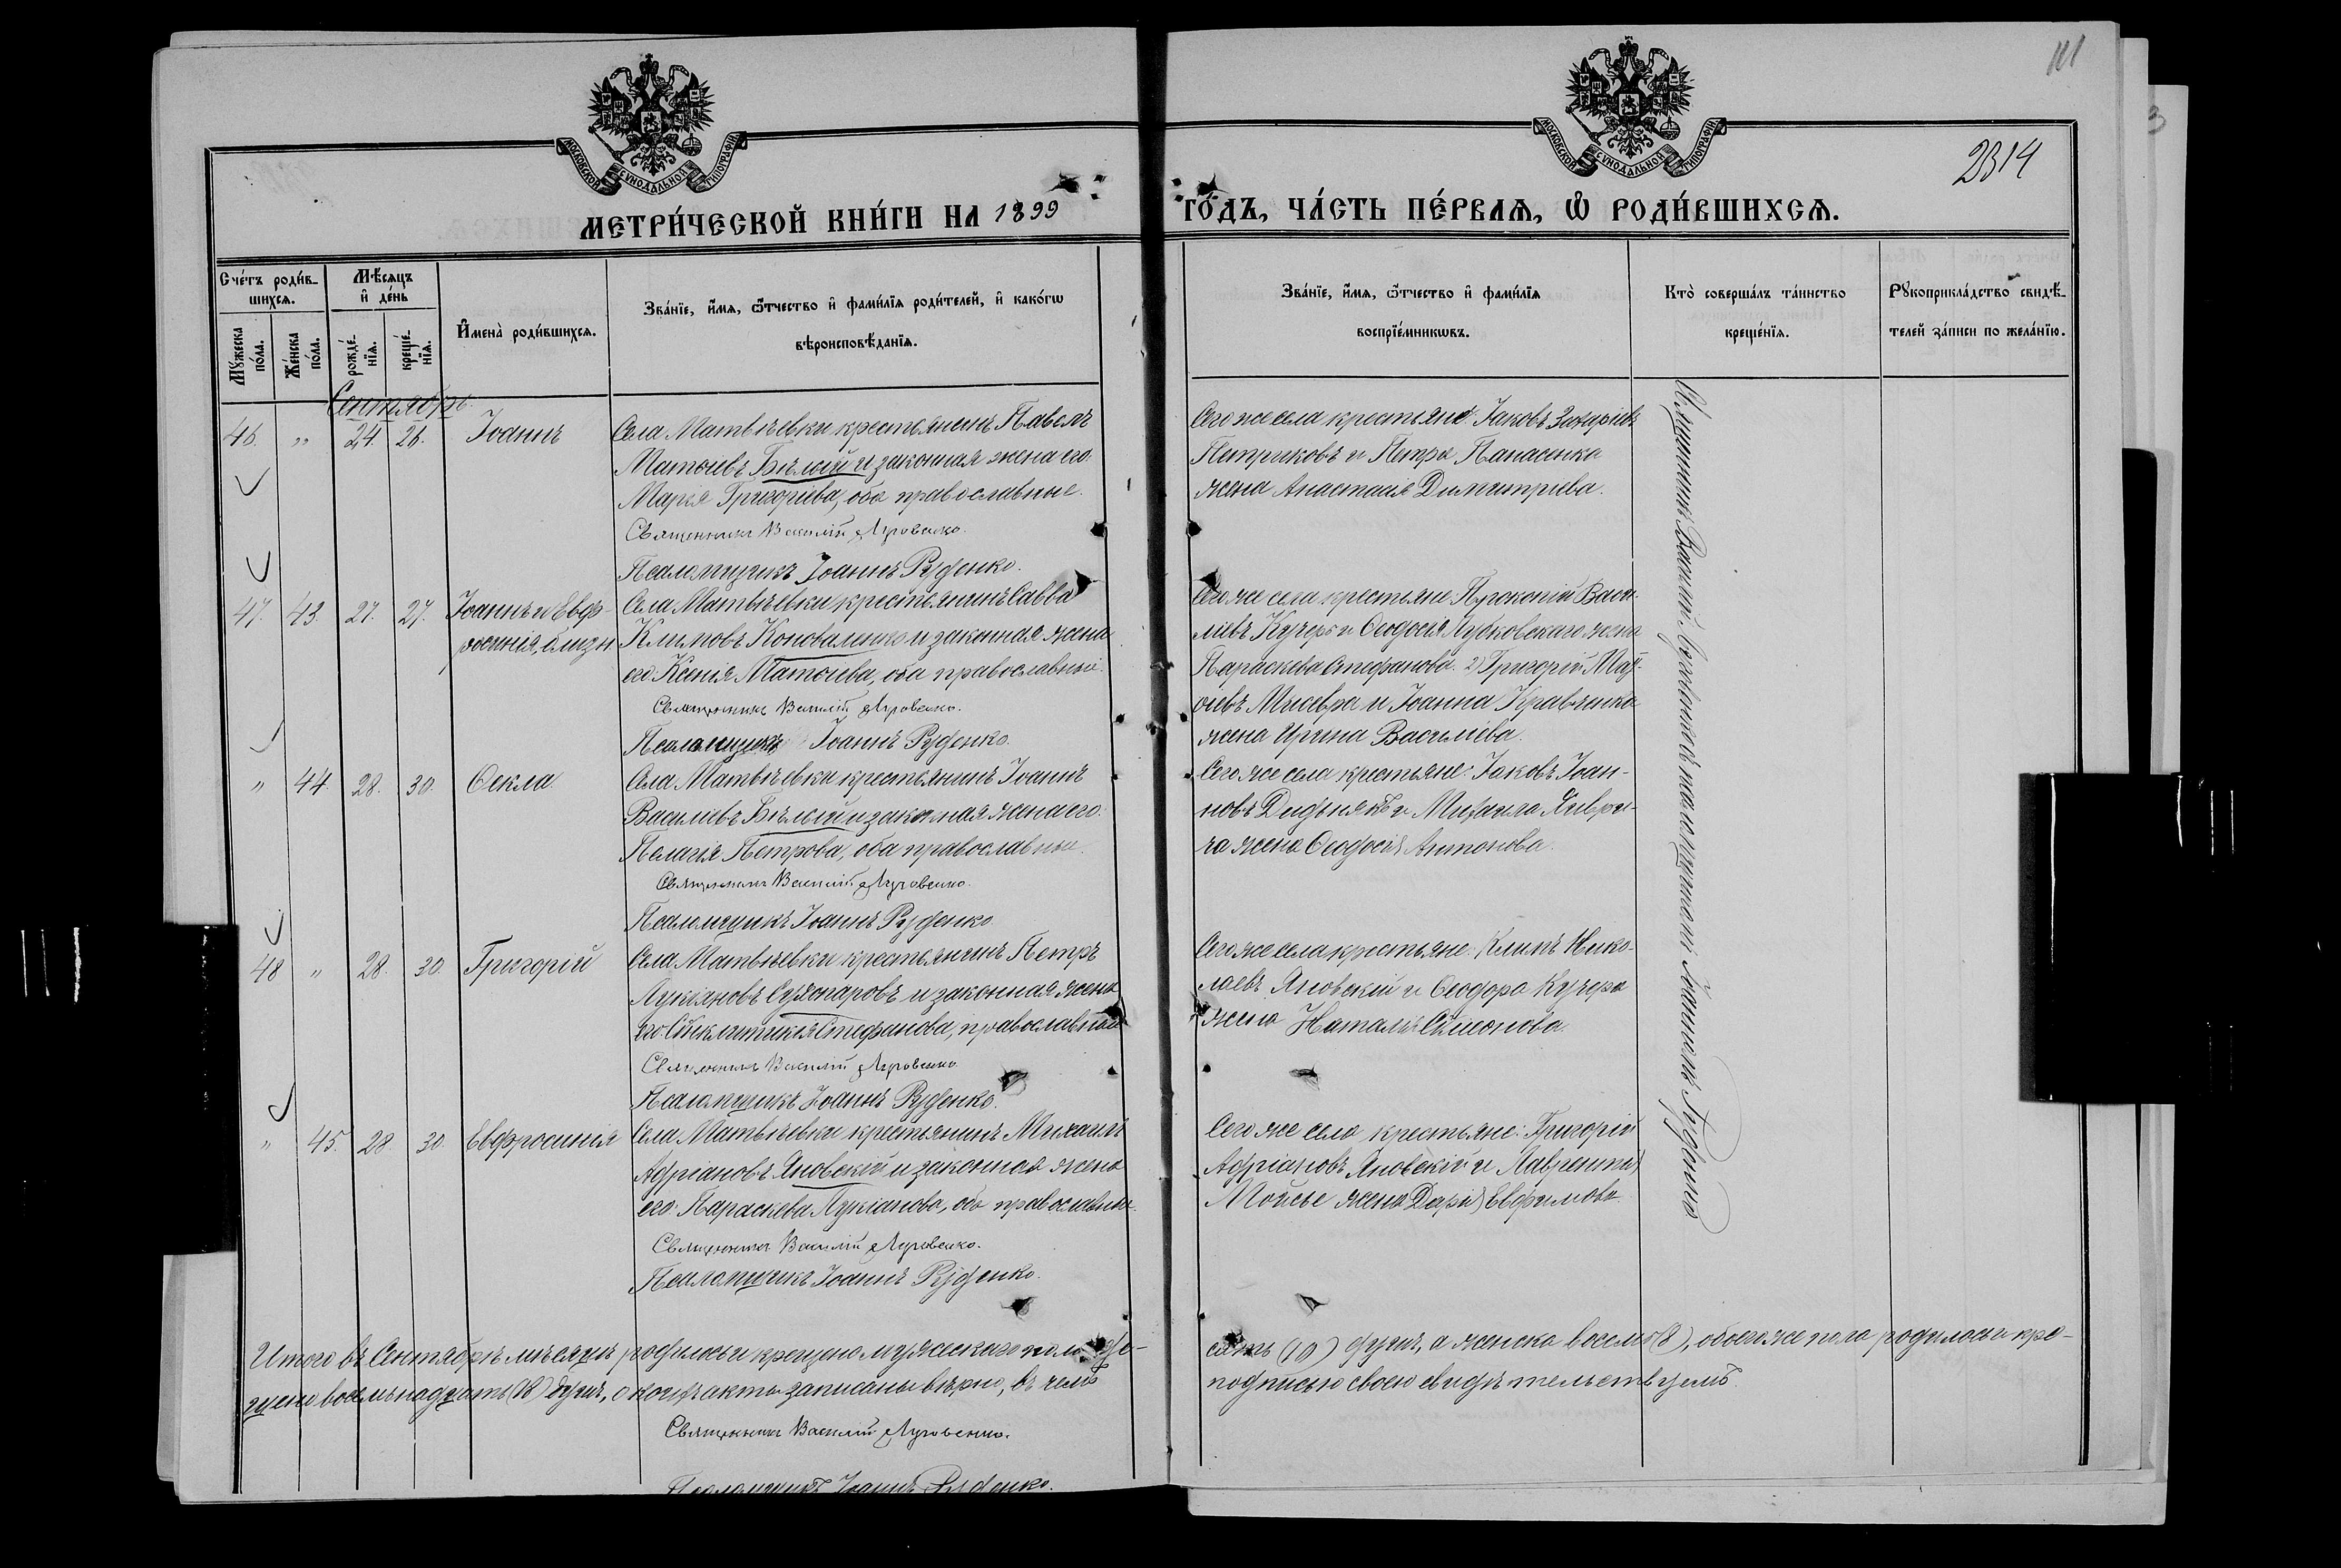 111
2314
МОСКОВСКОЙ СѴНОДАЛЬНОЙ ТИПОГРАФІИ
МОСКОВСКОЙ СѴНОДАЛЬНОЙ ТИПОГРАФІИ
МЕТРИ́ЧЕСКОЙ КНИ́ГИ НА 1899 ГО́ДЪ, ЧА́СТЬ ПЕ́РВАѦ, Ѡ҆ РОДИ́ВШИХСѦ.
Сче́тъ роди́в-
шихсѧ.
Мꙋ́жеска по́ла.
Же́нска по́ла.
Мѣ́сѧцъ
и҆ де́нь
рожде́-
нїѧ.
креще́-
нїѧ.
И҆мена̀ роди́вшихсѧ.
Зва́нїе, и҆́мѧ, ѻ҆́тчество и҆ фами́лїѧ роди́телей, и҆ како́гѡ
вѣроисповѣ́данїѧ.
Зва́нїе, и҆́мѧ, ѻ҆́тчество и҆ фами́лїѧ
воспрїе́мникѡвъ.
Кто̀ соверша́лъ та́инство
креще́нїѧ.
Рꙋкоприкла́дство свидѣ́-
телей за́писи по жела́нїю.
Сентябрь
46. " 24. 26. Іоаннъ
Села Матвѣевки крестьянинъ Павелъ
Матѳіевъ Бѣлый и законная жена его
Марія Григоріева, оба православные.
Священникъ Василій Луговенко.
Псаломщикъ Іоаннъ Руденко.
Сего же села крестьяне: Іаковъ Захаріевъ
Петриковъ и Петра Панасенка
жена Анастасія Димитріева.
47. 43. 27. 27. Іоаннъ и Евф-
росинія, близн.
Села Матвѣевки крестьянинъ Савва
Климовъ Коноваленко и законная жена
его Ксенія Матѳіева, оба православные.
Священникъ Василій Луговенко.
Псаломщикъ Іоаннъ Руденко.
Сего же села крестьяне: Прокопій Васи-
ліевъ Кучеръ и Ѳеодосія Лубковскаго жена
Параскева Стефанова. 2) Григорій Мат-
ѳіевъ и Іоанна Кравченка
жена Ирина Василіева.
" 44. 28. 30. Ѳекла.
Села Матвѣевки крестьянинъ Іоаннъ
Василіевъ Бѣлый и законная жена его
Пелагія Петрова, оба православные.
Священникъ Василій Луговенко.
Псаломщикъ Іоаннъ Руденко
Сего же села крестьяне: Іаковъ Іоан-
новъ и Михаила Хиври-
ча жена Ѳеодосія Антонова.
48 " 28. 30. Григорій
Села Матвѣевки крестьянинъ Петръ
Лукіановъ и законная жена
его Сѵнклитикія Стефанова, православные
Священникъ Василій Луговенко.
Псаломщикъ Іоаннъ Руденко.
Сего же села крестьяне: Климъ Нико-
лаевъ Яновскій и Ѳеодора Кучера
жена Наталія Симеонова.
" 45. 28. 30 Евфросинія
Села Матвѣевки крестьянинъ Михаилъ
Адріановъ Яновскій и законная жена
его Параскева Лукіанова, оба православные.
Священникъ Василій Луговенко.
Псаломщикъ Іоаннъ Руденко.
Сего же села крестьяне: Григорій
Адріановъ Яновскій и Лаврентія
жена Дарія Евфимова.
Священникъ Василій Луговенко съ псаломщикомъ Іоанномъ Руденко
Итого въ Сентябрѣ мѣсяцѣ родилось и крещено мужескаго пола де-
сять (10) душъ, а женска восемь (8), обоего же пола родилось и кре-
щено восемьнадцать (18) душъ, о коихъ акты записаны вѣрно, въ чемъ
подписью своею свидѣтельствуемъ.
Священникъ Василій Луговенко.
Псаломщикъ Іоаннъ Руденко.